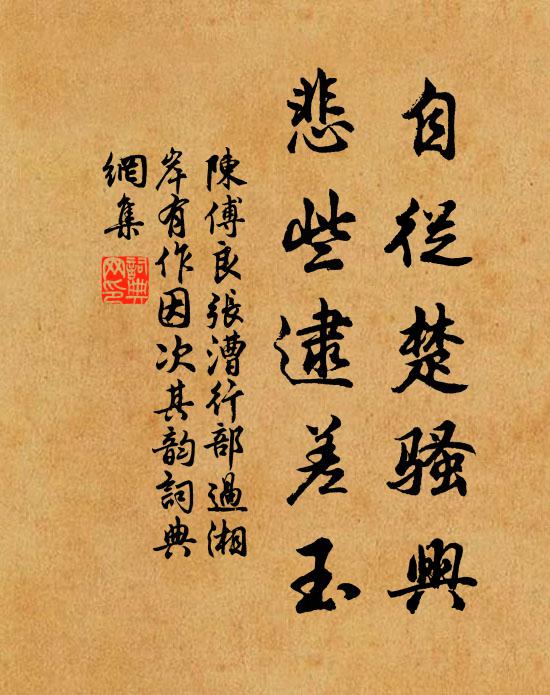 自從楚騷興
悲些逮差玉
陳傅良張漕行部過湘
岸有作因次其韵詞典
網集
詞典網印